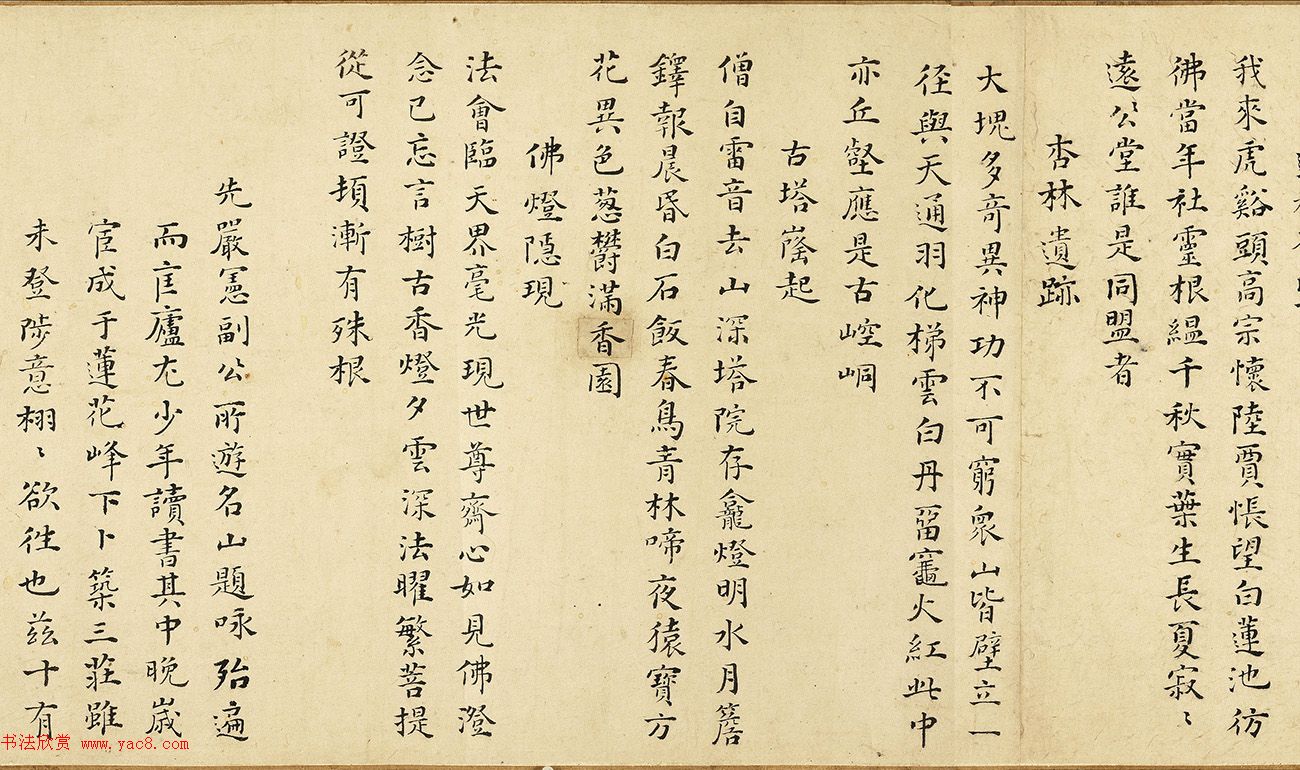 我來虎谿頭高宗懷陸賈悵望白蓮池彷
彿當年社靈根縕千秋實葉生長夏寂〻
遠公堂誰是同盟者
杏林遺跡
大塊多奇異神功不可窮衆山皆壁立一
径與天通羽化梯雲白丹留竈火紅此中
亦丘壑應是古崆峒
古塔嶐起
僧自雷音去山深塔院存龕燈明水月簷
鐸報晨昏白石飯春鳥青林啼夜猿寶方
花異色葱欝滿香園
佛燈隱現
法會臨天界毫光現世尊齋心如見佛澄
念已忘言樹古香燈夕雲深法曜繁菩提
從可證頓漸有殊根
先嚴憲副公所遊名山題咏殆遍
而匡廬尤少年讀書其中晚歲
宦成于蓮花峰下卜築三莊雖
未登陟意栩〻欲徃也兹十有
书法欣赏 www.yac8.com